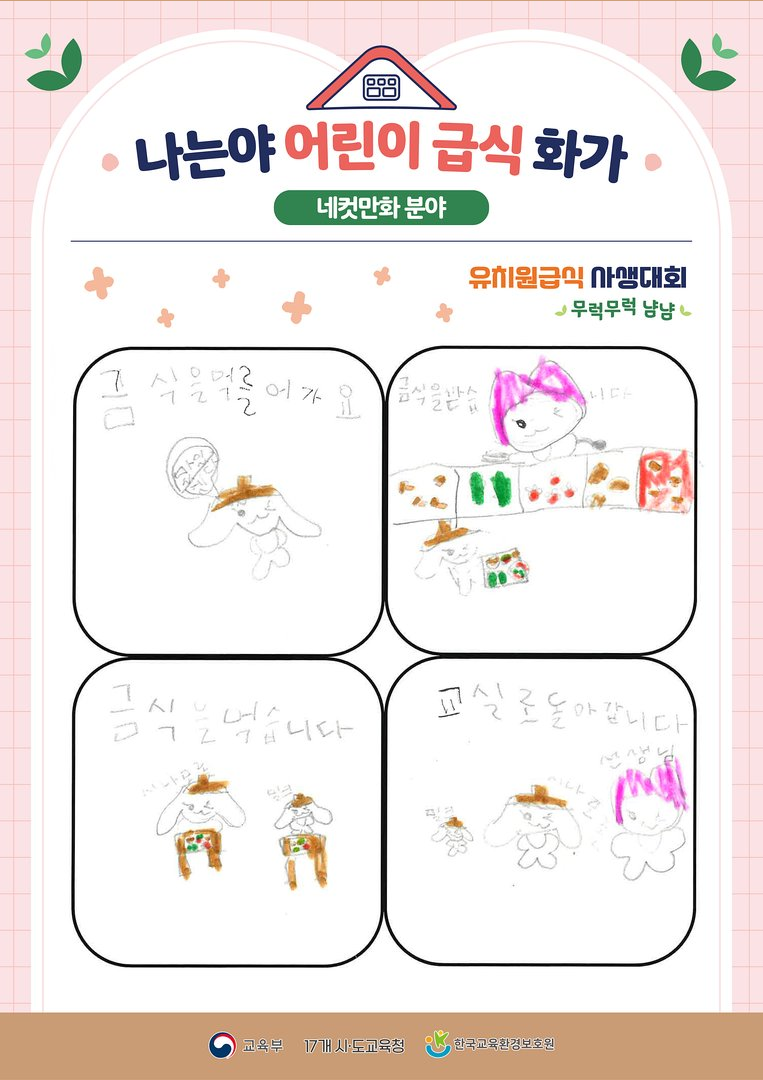 나는야 어린이 급식 화가
네컷만화 분야
유치원급식 사생대회
무럭무럭 냠냠
급식을먹를어가요
급식을받습니다
급식을먹습니다
시나모롤
밀크
교실로돌아갑니다
선생님
시나모롤
밀크
교육부 17개 시·도교육청 한국교육환경보호원